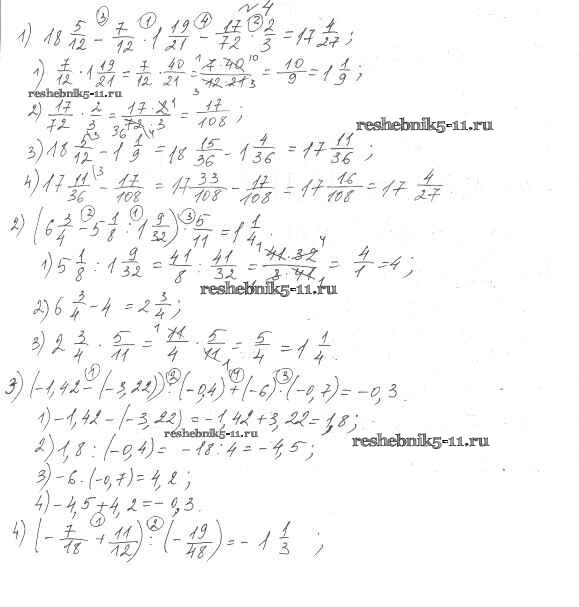 №4
1) 18 5/12 - 7/12 · 1 19/21 - 17/72 · 2/3 = 17 4/27 ;
1) 7/12 · 1 19/21 = 7/12 · 40/21 = 7·40/12·21 = 10/9 = 1 1/9 ;
reshebnik5-11.ru
2) 17/72 · 2/3 = 17·2/72·3 = 17/108 ;
reshebnik5-11.ru
3) 18 5/12 - 1 1/9 = 18 15/36 - 1 4/36 = 17 11/36 ;
4) 17 11/36 - 17/108 = 17 33/108 - 17/108 = 17 16/108 = 17 4/27 .
2) (6 3/4 - 5 1/8 : 1 9/32) · 5/11 = 1 1/4
1) 5 1/8 : 1 9/32 = 41/8 : 41/32 = 41·32/8·41 = 4/1 = 4 ;
reshebnik5-11.ru
2) 6 3/4 - 4 = 2 3/4 ;
3) 2 3/4 · 5/11 = 11/4 · 5/11 = 5/4 = 1 1/4 .
3) (-1,42 - (-3,22)) : (-0,4) + (-6) · (-0,7) = -0,3
1) -1,42 - (-3,22) = -1,42 + 3,22 = 1,8 ;
reshebnik5-11.ru
2) 1,8 : (-0,4) = -18 : 4 = -4,5 ;
reshebnik5-11.ru
3) -6 · (-0,7) = 4,2 ;
4) -4,5 + 4,2 = -0,3 .
4) (- 7/18 + 11/12) : (- 19/48) = - 1 1/3 ;